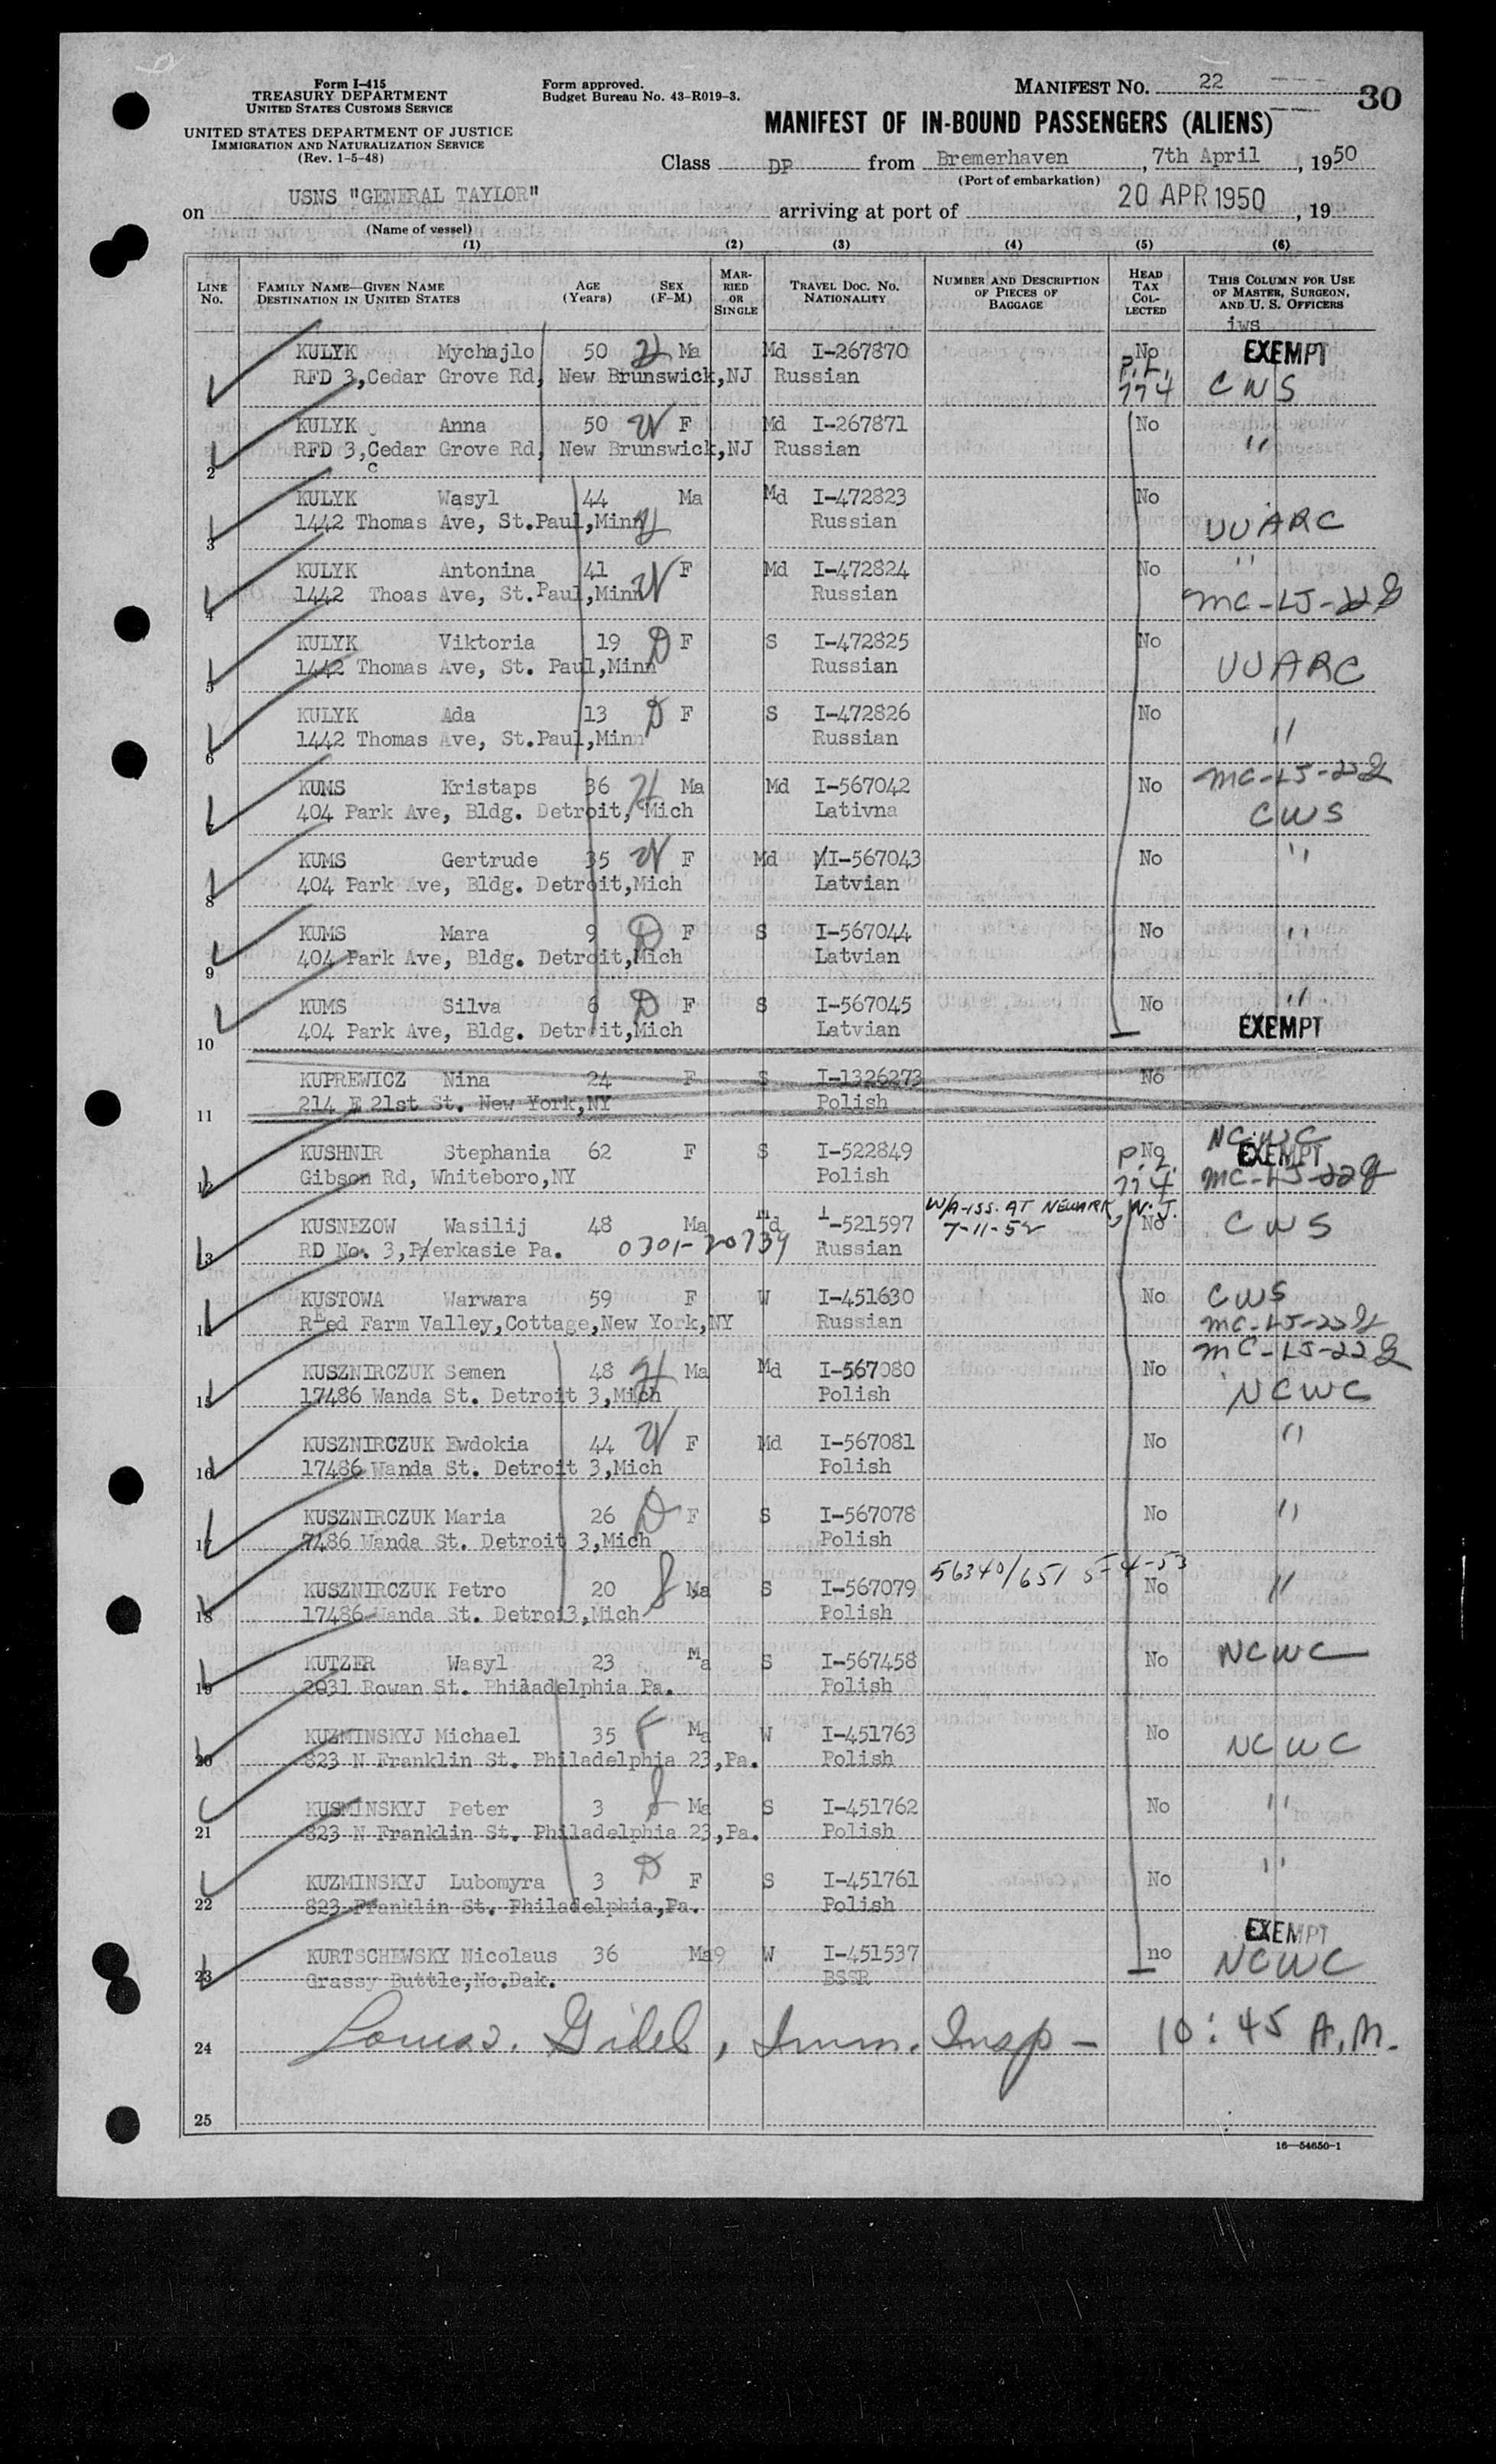 Form I-415
TREASURY DEPARTMENT
UNITED STATES CUSTOMS SERVICE
UNITED STATES DEPARTMENT OF JUSTICE
IMMIGRATION AND NATURALIZATION SERVICE
(Rev. 1-5-48)
Form approved.
Budget Bureau No. 43-R019-3.
MANIFEST No. 22
30
MANIFEST OF IN-BOUND PASSENGERS (ALIENS)
Class DP from Bremerhaven, 7th April, 1950
(Port of embarkation)
on USNS "GENERAL TAYLOR" arriving at port of 20 APR 1950, 19
(Name of vessel)
(1) (2) (3) (4) (5) (6)
LINE No. FAMILY NAME—GIVEN NAME DESTINATION IN UNITED STATES AGE (Years) SEX (F-M) MARRIED OR SINGLE TRAVEL DOC. NO. NATIONALITY NUMBER AND DESCRIPTION OF PIECES OF BAGGAGE HEAD TAX COLLECTED THIS COLUMN FOR USE OF MASTER, SURGEON, AND U. S. OFFICERS
iws
KULYK Mychajlo 50 Ma Md I-267870 No EXEMPT
RFD 3,Cedar Grove Rd, New Brunswick,NJ Russian P.L. 774 CWS
KULYK Anna 50 W F Md I-267871 No "
2 RFD 3,Cedar Grove Rd, New Brunswick,NJ Russian
c
KULYK Wasyl 44 Ma Md I-472823 No
3 1442 Thomas Ave, St.Paul,Minn Russian UUARC
KULYK Antonina 41 W F Md I-472824 No "
4 1442 Thoas Ave, St.Paul,Minn Russian MC-LJ-22
KULYK Viktoria 19 D F S I-472825 No
5 1442 Thomas Ave, St. Paul,Minn Russian UUARC
KULYK Ada 13 D F S I-472826 No "
6 1442 Thomas Ave, St.Paul,Minn Russian
KUMS Kristaps 36 Ma Md I-567042 No MC-LJ-22
7 404 Park Ave, Bldg. Detroit, Mich Lativna CWS
KUMS Gertrude 35 W F Md I-567043 No "
8 404 Park Ave, Bldg. Detroit,Mich Latvian
KUMS Mara 9 D F S I-567044 No "
9 404 Park Ave, Bldg. Detroit,Mich Latvian
KUMS Silva 6 D F S I-567045 No "
10 404 Park Ave, Bldg. Detroit,Mich Latvian EXEMPT
KUPREWICZ Nina 24 F S I-1326273 No
11 214 E 21st St. New York,NY Polish
NCWC
KUSHNIR Stephania 62 F S I-522849 No EXEMPT
12 Gibson Rd, Whiteboro,NY Polish P.L. 774 MC-LJ-22
W/A-ISS. AT NEWARK, N.J.
KUSNEZOW Wasilij 48 Ma Md I-521597 7-11-52 No CWS
13 RD No. 3,Perkasie Pa. 0301-20734 Russian
KUSTOWA Warwara 59 F W I-451630 No CWS
14 REed Farm Valley,Cottage,New York,NY Russian MC-LJ-22
MC-LJ-22
KUSZNIRCZUK Semen 48 Ma Md I-567080 No
15 17486 Wanda St. Detroit 3,Mich Polish NCWC
KUSZNIRCZUK Ewdokia 44 W F Md I-567081 No "
16 17486 Wanda St. Detroit 3,Mich Polish
KUSZNIRCZUK Maria 26 D F S I-567078 No "
17 7486 Wanda St. Detroit 3,Mich Polish
56340/651 5-4-53
KUSZNIRCZUK Petro 20 S Ma S I-567079 No "
18 17486 Wanda St. Detroi3,Mich Polish
KUTZER Wasyl 23 Ma S I-567458 No NCWC
19 2031 Rowan St. Philadelphia Pa. Polish
KUZMINSKYJ Michael 35 F Ma W I-451763 No
20 823 N Franklin St. Philadelphia 23,Pa. Polish NCWC
KUSMINSKYJ Peter 3 S Ma S I-451762 No "
21 823 N Franklin St. Philadelphia 23,Pa. Polish
KUZMINSKYJ Lubomyra 3 D F S I-451761 No "
22 823 Franklin St. Philadelphia,Pa. Polish
EXEMPT
KURTSCHEWSKY Nicolaus 36 Ma9 W I-451537 no NCWC
23 Grassy Buttle,No.Dak. BSSR
24 Imm. Insp - 10:45 A.M.
25
16—54650-1